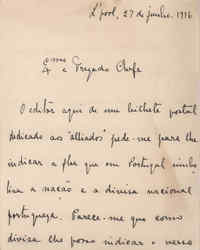 L'pool, 27 de junho. 1916
Exmo e Prezado Chefe
O editor aqui de um bilhete postal
dedicado aos "alliados" pede-me para lhe
indicar a flor que em Portugal
a nação e a divisa nacional
portugueza. Parece-me que como
divisa lhe posso indicar o verso